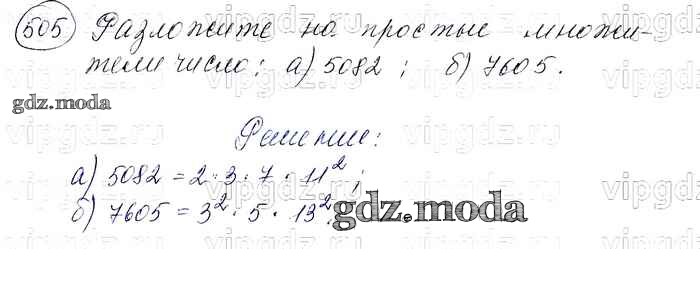 505 Разложите на простые множи-
тели число: а) 5082 ; б) 7605.
gdz.moda
Решение:
а) 5082 = 2 · 3 · 7 · 11² ;
б) 7605 = 3² · 5 · 13².
gdz.moda